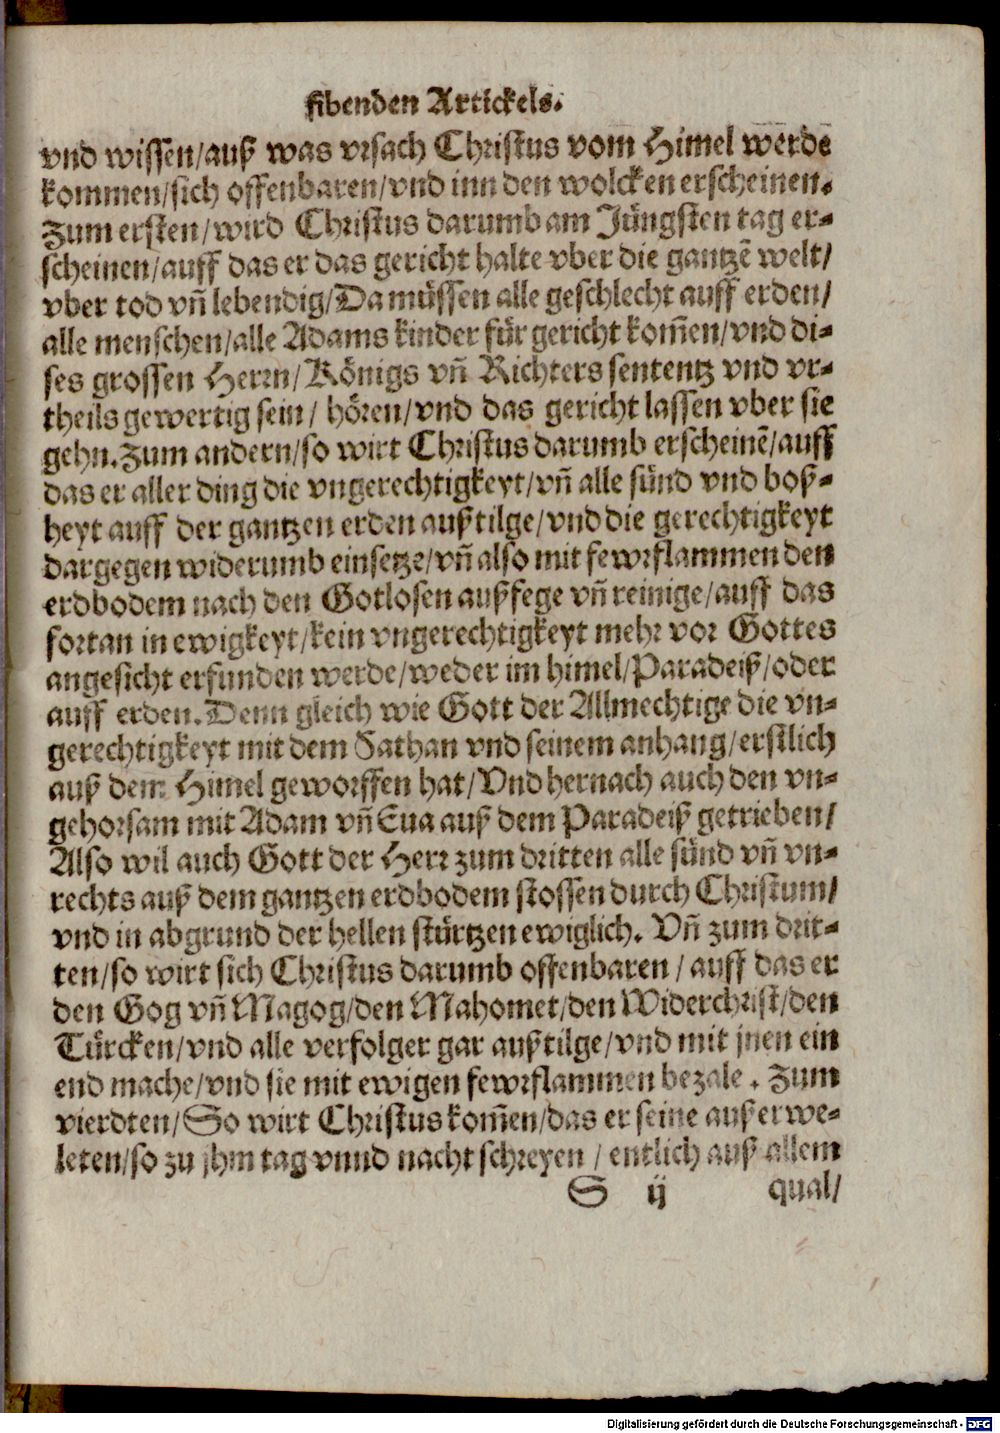 sibenden Artickels.
vnd wissen/auß was vrsach Christus vom Himel werde
kommen/sich offenbaren/vnd inn den wolcken erscheinen.
Zum ersten/wird Christus darumb am Jüngsten tag er-
scheinen/auff das er das gericht halte vber die gantzē welt/
vber tod vñ lebendig/Da müssen alle geschlecht auff erden/
alle menschen/alle Adams kinder für gericht kom̄en/vnd di-
ses grossen Herrn/Königs vñ Richters sententz vnd vr-
theils gewertig sein/ hören/vnd das gericht lassen vber sie
gehn.Zum andern/so wirt Christus darumb erscheinē/auff
das er aller ding die vngerechtigkeyt/vñ alle sünd vnd boß-
heyt auff der gantzen erden außtilge/vnd die gerechtigkeyt
dargegen widerumb einsetze/vñ also mit fewrflammen den
erdbodem nach den Gotlosen außfege vñ reinige/auff das
fortan in ewigkeyt/kein vngerechtigkeyt mehr vor Gottes
angesicht erfunden werde/weder im himel/Paradeiß/oder
auff erden.Denn gleich wie Gott der Allmechtige die vn-
gerechtigkeyt mit dem Sathan vnd seinem anhang/erstlich
auß dem Himel geworffen hat/Vnd hernach auch den vn-
gehorsam mit Adam vñ Eua auß dem Paradeiß getrieben/
Also wil auch Gott der Herr zum dritten alle sünd vñ vn-
rechts auß dem gantzen erdbodem stossen durch Christum/
vnd in abgrund der hellen stürtzen ewiglich. Vñ zum drit-
ten/so wirt sich Christus darumb offenbaren / auff das er
den Gog vñ Magog/den Mahomet/den Widerchrist/den
Türcken/vnd alle verfolger gar außtilge/vnd mit jnen ein
end mache/vnd sie mit ewigen fewrflammen bezale . Zum
vierdten/So wirt Christus kom̄en/das er seine außerwe-
leten/so zu jhm tag vnnd nacht schreyen / entlich auß allem
S ij qual/
Digitalisierung gefördert durch die Deutsche Forschungsgemeinschaft - DFG